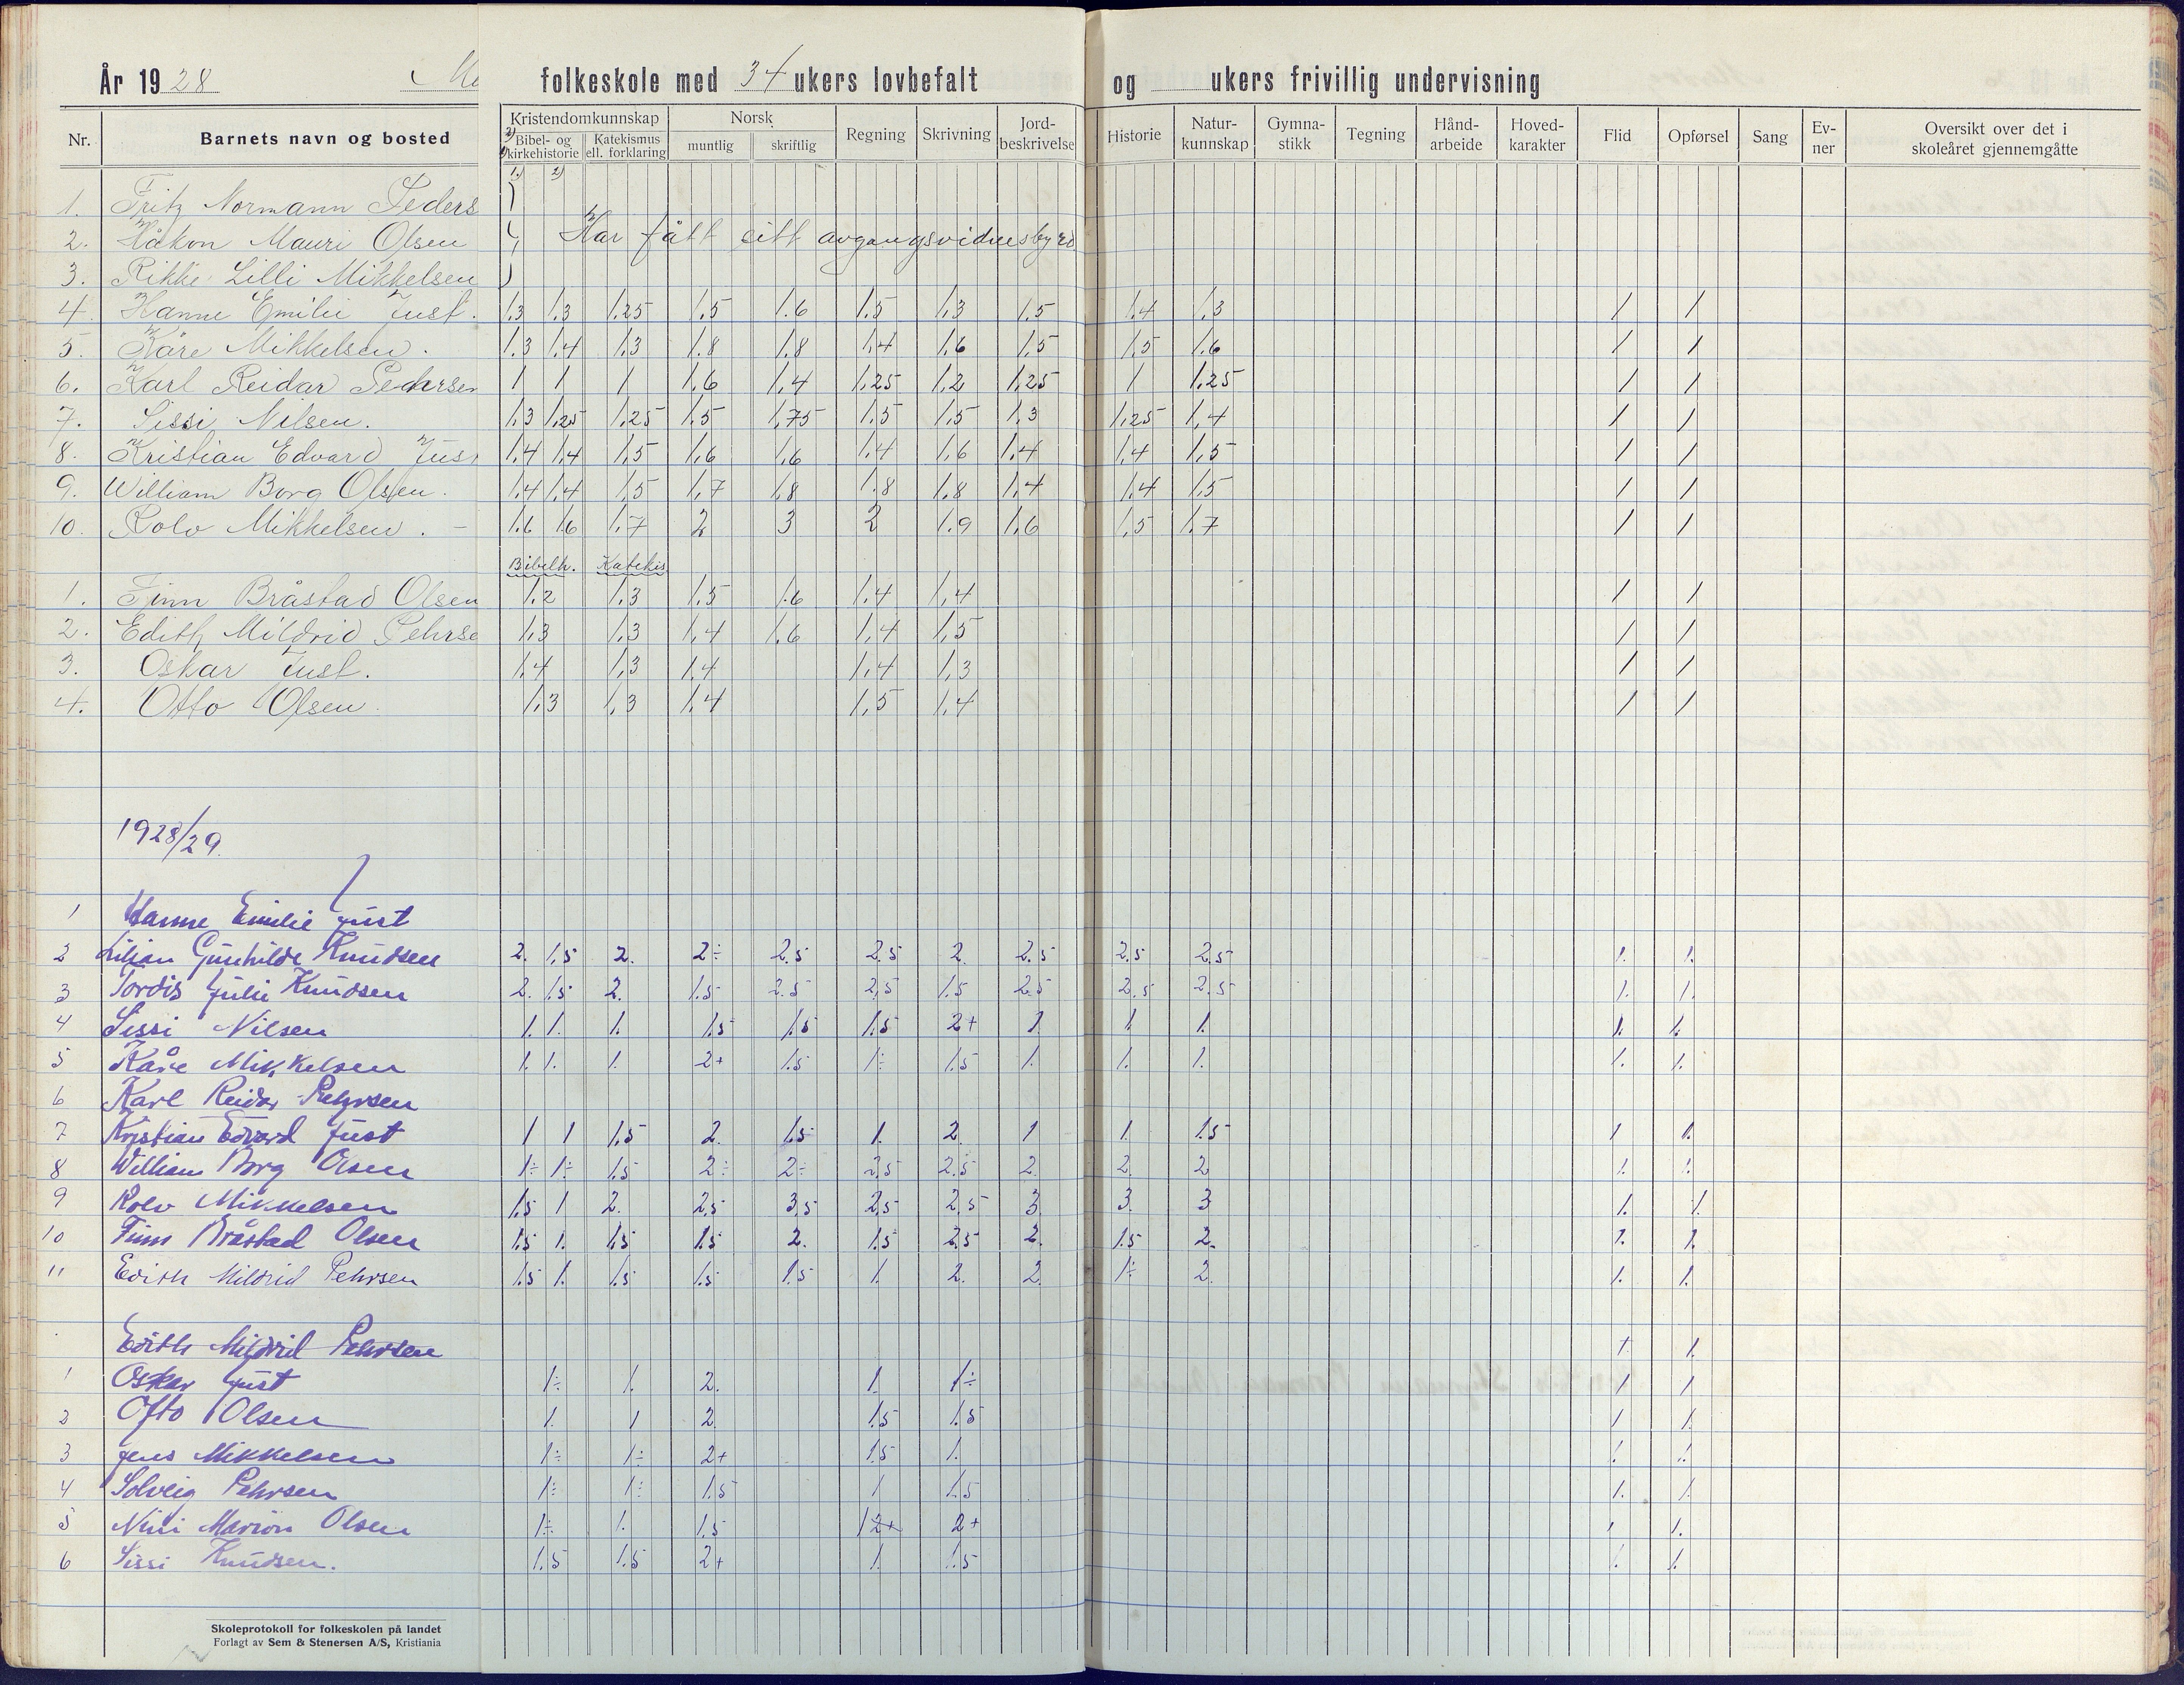 År 1928 folkeskole med 34 ukers lovbefalt og ukers frivillig undervisning
Nr. Barnets navn og bosted Kristendomkunnskap Norsk Regning Skrivning Jord-beskrivelse Historie Natur-kunnskap Gymna-stikk Tegning Hånd-arbeide Hoved-karakter Flid Opførsel Sang Ev-ner Oversikt over det i skoleåret gjennemgåtte
Bibel- og kirkehistorie Katekismus ell. forklaring muntlig skriftlig
1) 2)
1. Fritz Normann Peders
2. Håkon Mauri Olsen Har fått sitt avgangsvidnesbyrd
3. Rikke Lilli Mikkelsen
4. Hanne Emilie Just. 1,3 1,3 1,25 1,5 1.6 1.5 1,3 1,5 1.4 1,3 1 1
5. Kåre Mikkelsen. 1.3 1.4 1,3 1.8 1,8 1,4 1.6 1,5 1,5 1.6 1 1
6. Karl Reidar Pedersen 1 1 1 1,6 1,4 1,25 1,2 1,25 1 1,25 1 1
7. Sissi Nilsen. 1,3 1,25 1,25 1,5 1,75 1,5 1,5 1,3 1,25 1,4 1 1
8. Kristian Edvard Jus 1,4 1,4 1,5 1,6 1,6 1,4 1,6 1,4 1,4 1,5 1 1
9. William Borg Olsen. 1,4 1,4 1,5 1,7 1,8 1.8 1,8 1,4 1,4 1,5 1 1
10. Rolv Mikkelsen. - 1.6 1.6 1,7 2 3 2 1.9 1,6 1,5 1,7 1 1
Bibelh. Katekis
1. Finn Bråstad Olsen 1.2 1,3 1.5 1.6 1,4 1,4 1 1
2. Edith Mildrid Pehrse 1,3 1,3 1,4 1,6 1,4 1,5 1 1
3. Oskar Just. 1,4 1,3 1,4 1,4 1,3 1 1
4. Otto Olsen. 1,3 1,3 1,4 1,5 1,4 1 1
1928/29.
1 Hanne Emilie Just
2 Lilian Gunhilde Knudsen 2. 1,5 2. 2÷ 2.5 2.5 2. 2.5 2.5 2.5 1. 1.
3 Tordis Julie Knudsen 2. 1.5 2. 1.5 2.5 2,5 1.5 2.5 2.5 2.5 1. 1.
4 Sissi Nilsen 1. 1. 1. 1.5 1.5 1.5 2+ 1 1 1. 1. 1.
5 Kåre Mikkelsen 1. 1. 1. 2+ 1.5 1÷ 1.5 1. 1. 1. 1. 1.
6 Karl Reidar Pehrsen
7 Kristian Edvard Just 1 1 1.5 2. 1.5 1. 2. 1 1. 1.5 1 1.
8 William Borg Olsen 1÷ 1÷ 1.5 2÷ 2÷ 2,5 2.5 2. 2. 2 1. 1.
9 Rolv Mikkelsen 1.5 1 2. 2,5 3,5 2,5 2,5 3. 3. 3 1. 1.
10 Finn Bråstad Olsen 1.5 1. 1.5 1.5 2. 1.5 2.5 2. 1.5 2. 1. 1.
11 Edith Mildrid Pehrsen 1.5 1. 1.5 1.5 1.5 1. 2. 2. 1÷ 2. 1. 1.
Edith Mildrid Pehrsen 1.
1 Oskar Just 1÷ 1. 2. 1. 1÷ 1 1
2 Otto Olsen 1. 1 2. 1.5 1.5 1 1.
3 Jens Mikkelsen 1÷ 1÷ 2+ 1.5 1. 1. 1.
4 Solveig Pehrsen 1÷ 1÷ 1.5 1 1.5 1. 1.
5 Nini Marion Olsen 1÷ 1. 1.5 1 2+ 2+ 1 1.
6 Sissi Knudsen. 1.5 1.5 2+ 1. 1.5 1. 1.
Skoleprotokoll for folkeskolen på landet
Forlagt av Sem & Stenersen A/S, Kristiania